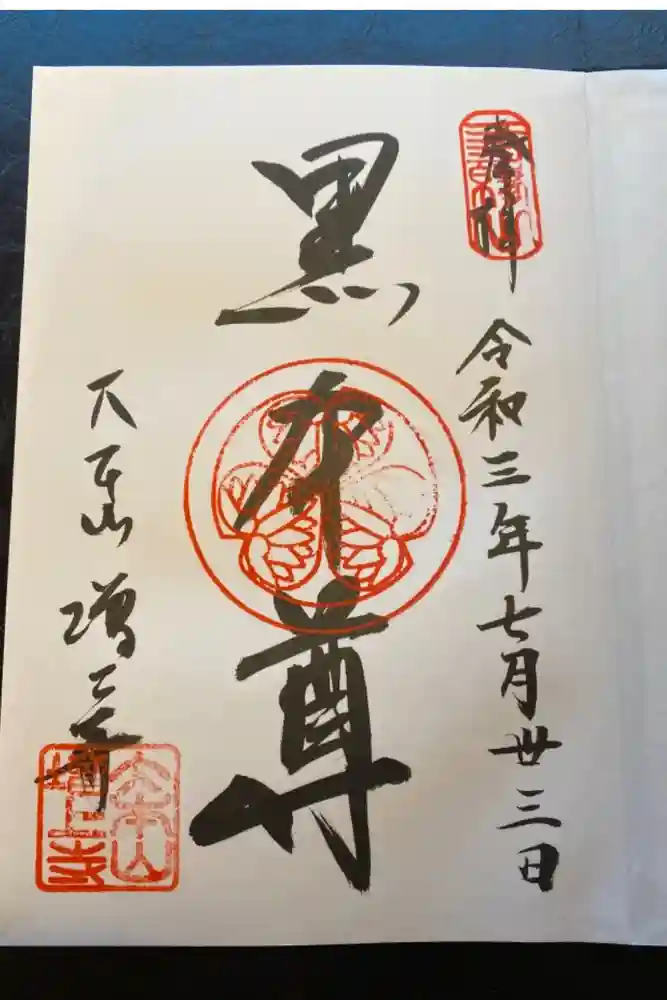 奉拝
令和三年七月廿三日
黒本尊
大本山 増上寺
大本山
増上寺